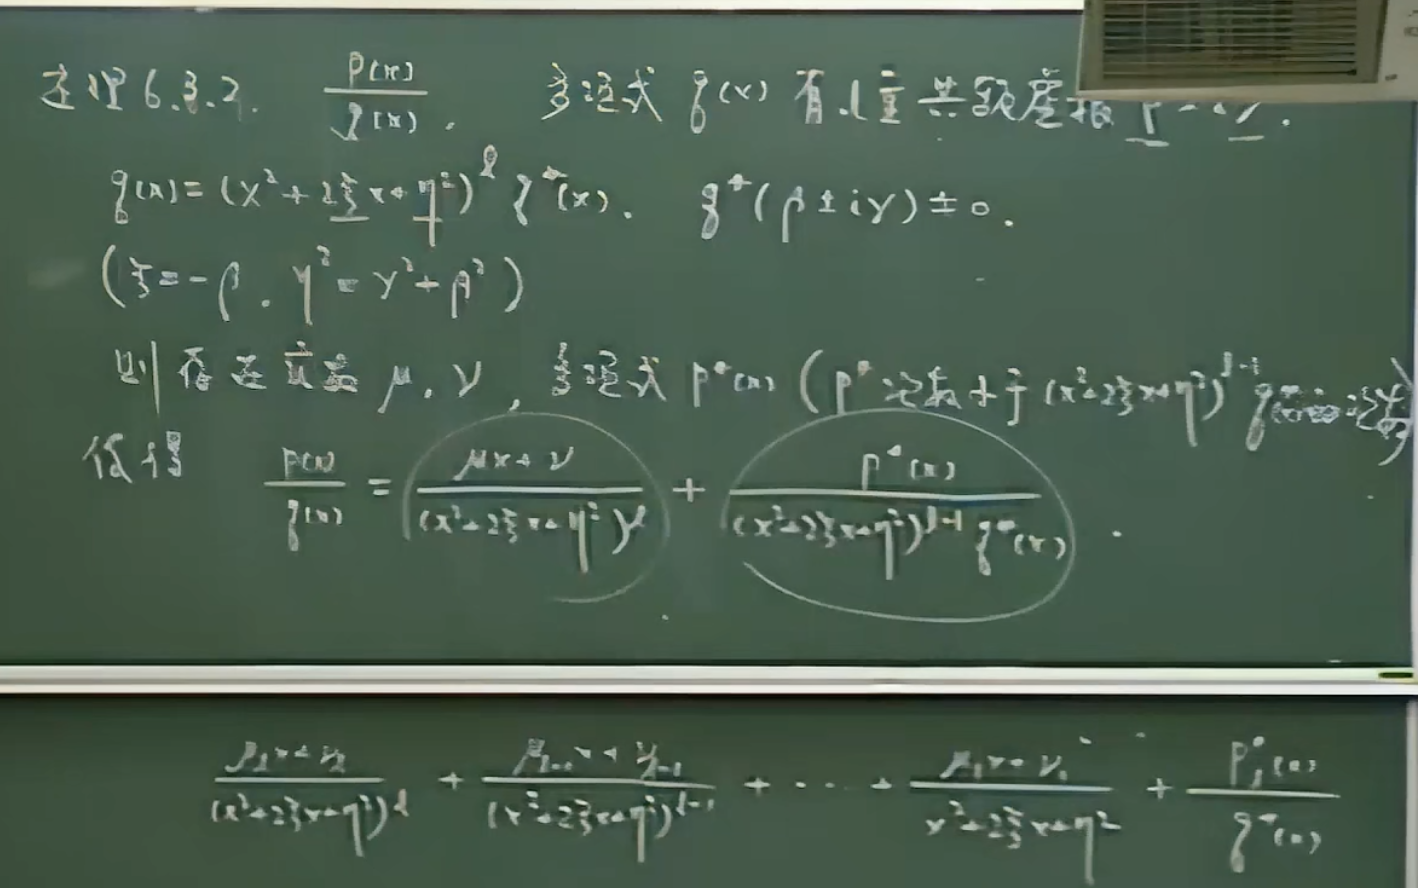 定理6.3.2. p(x)/q(x). 多项式 q(x) 有 l 重共轭虚根 β
q(x) = (x²+2ξx+η²)^l q*(x). q*(β±iγ) ≠ 0.
(ξ=-β. η²=γ²+β²)
则存在实数 μ, ν, 多项式 p*(x) (p* 次数小于 (x²+2ξx+η²)^{l-1} q*(x) 次数)
使得 p(x)/q(x) = (μx+ν)/(x²+2ξx+η²)^l + p*(x)/((x²+2ξx+η²)^{l-1} q*(x)).
(μ_l x+ν_l)/(x²+2ξx+η²)^l + (μ_{l-1} x+ν_{l-1})/(x²+2ξx+η²)^{l-1} + ··· + (μ₁x+ν₁)/(x²+2ξx+η²) + p₁*(x)/q*(x)